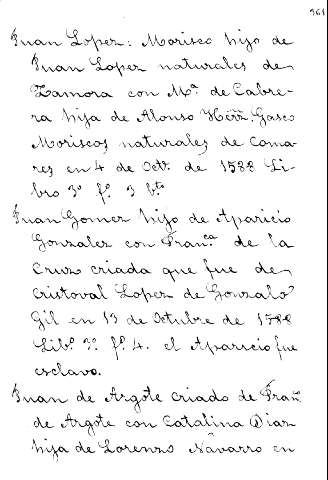 961
Juan Lopez: Morisco hijo de
Juan Lopez naturales de
Zamora con Mª de Cabre-
ra hija de Alonso Herrz Gasco
Moriscos naturales de Coma-
res en 4 de Octe de 1588 Li-
bro 3º fº 3 bto
Juan Gomez hijo de Aparicio
Gonzalez con Franca de la
Cruz criada que fue de
Cristoval Lopez de Gonzalo
Gil en 13 de Octubre de 1588
Libº 3º fº 4. el Aparicio fue
esclavo.
Juan de Argote criado de Franco
de Argote con Catalina Diaz
hija de Lorenzo Navarro en